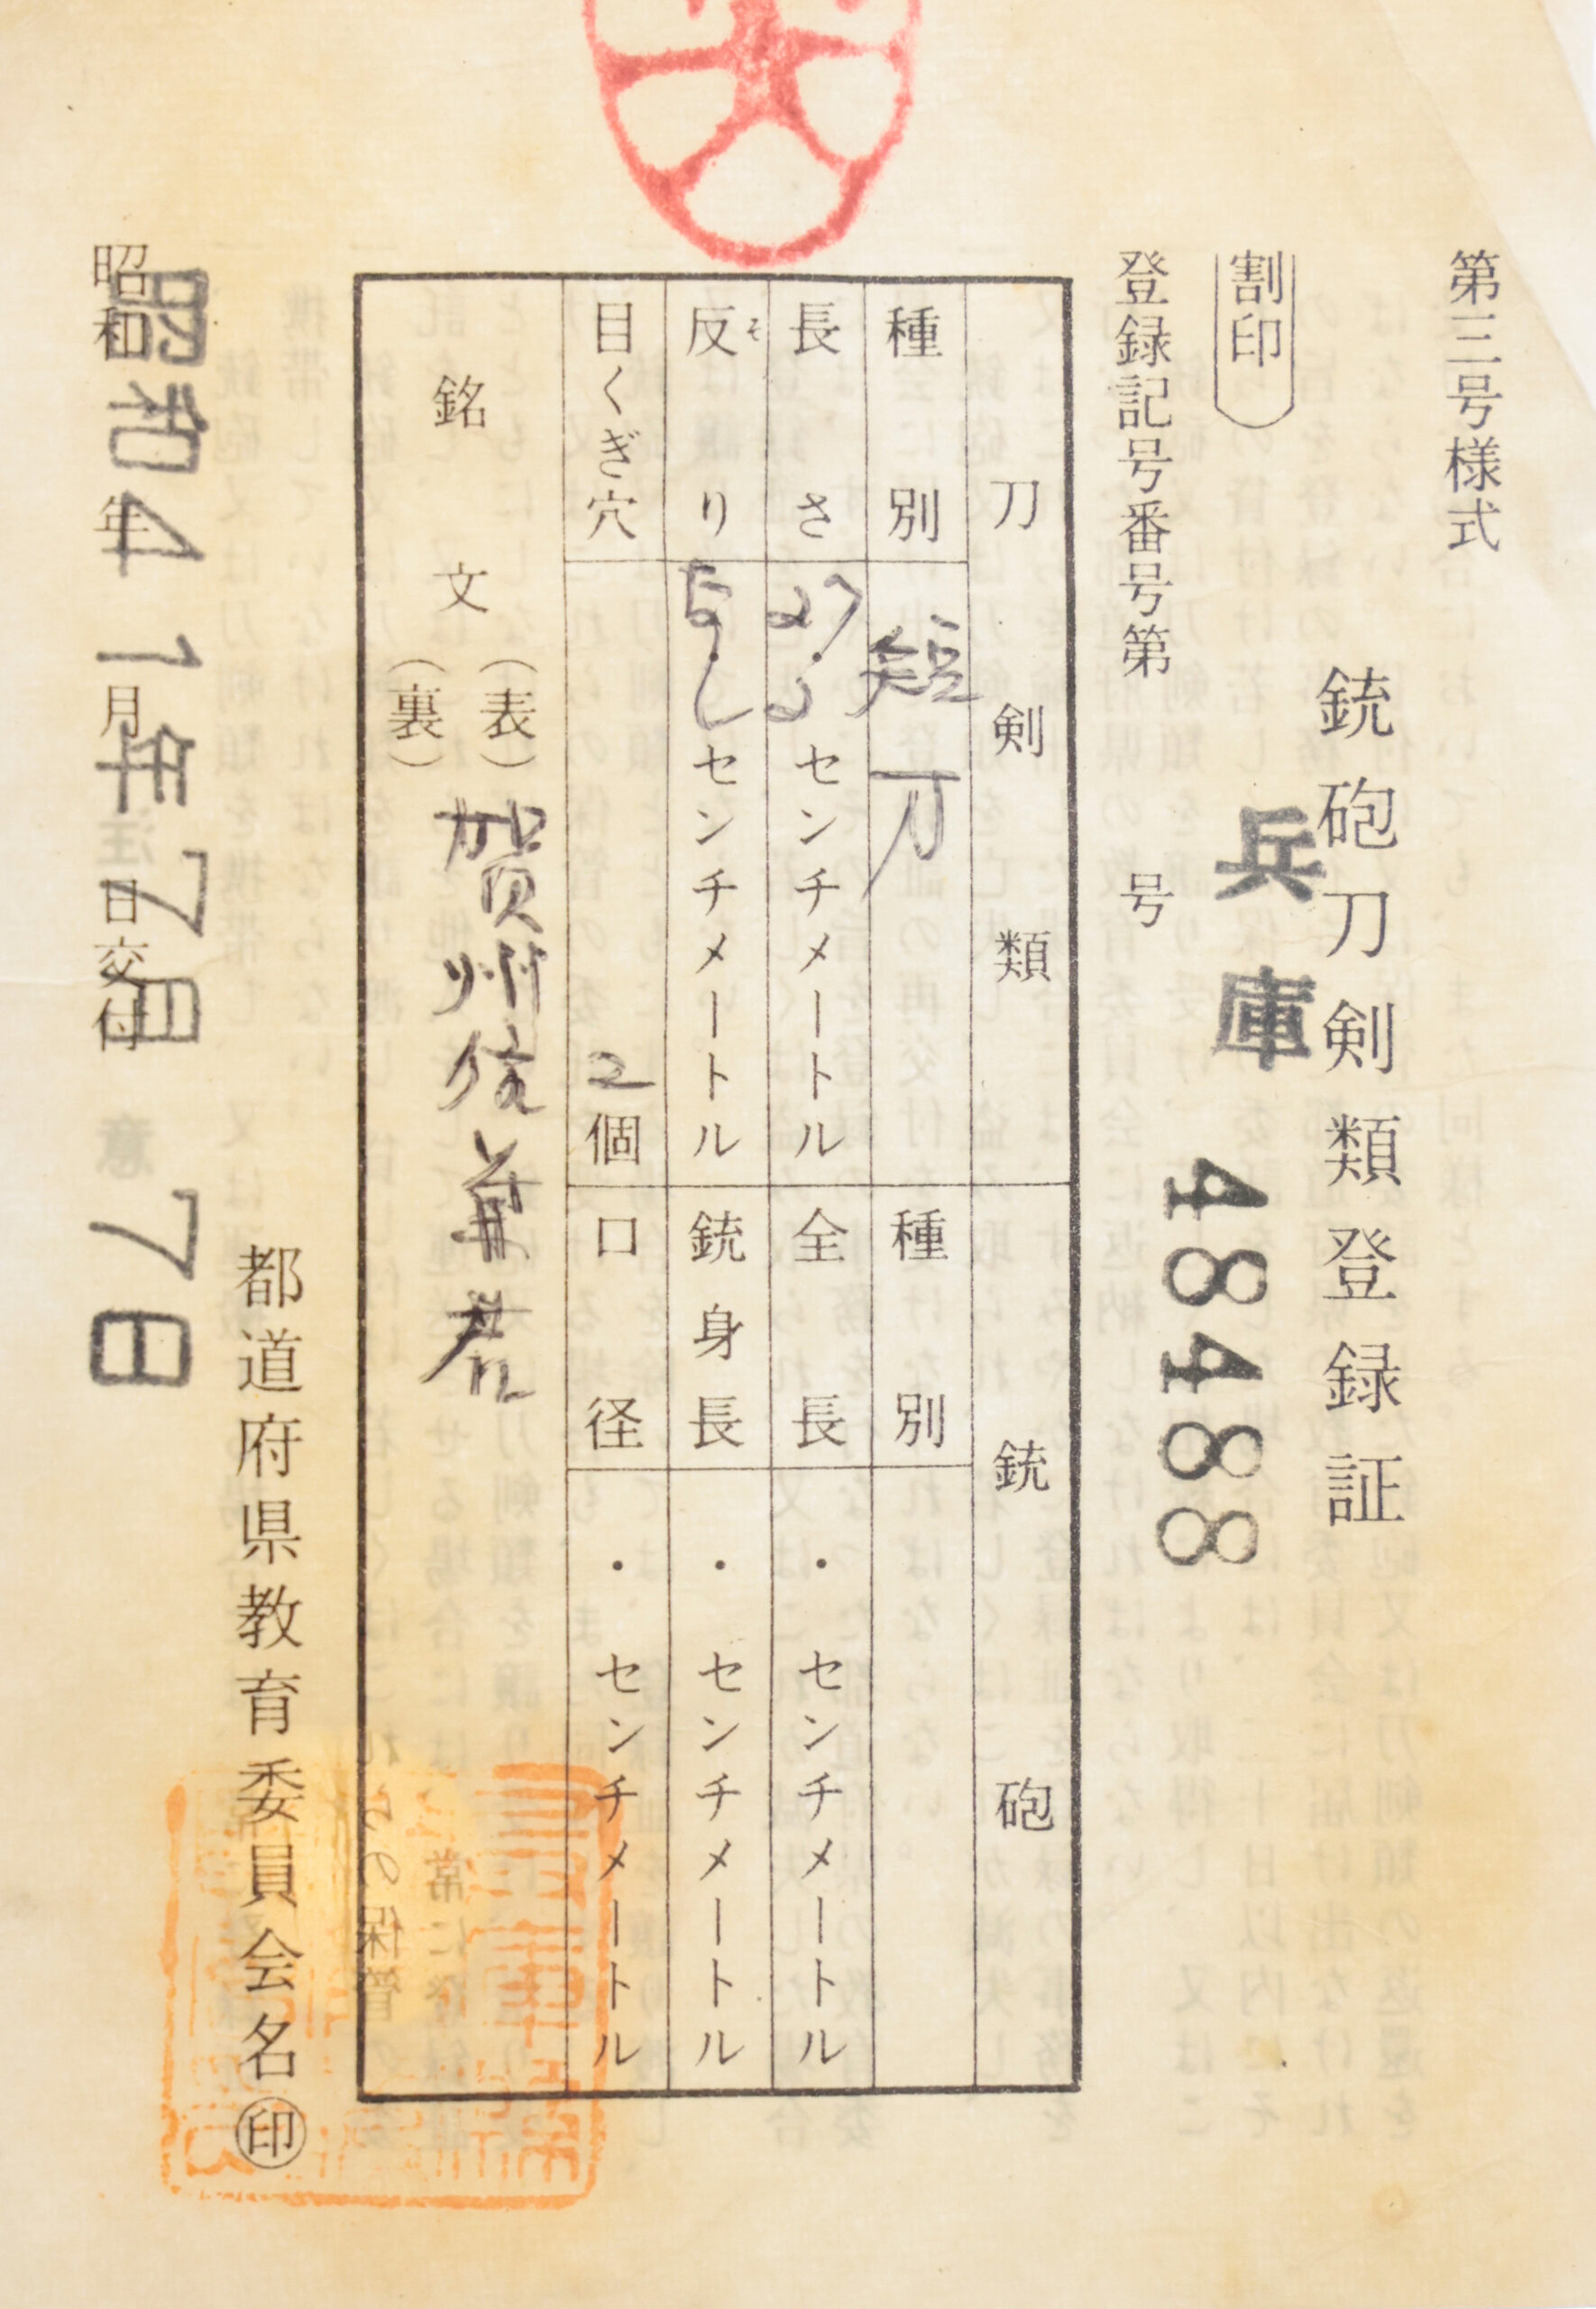 第三号様式
銃砲刀剣類登録証
割印
兵庫 48488
登録記号番号第 号
刀剣類 銃砲
種別 短刀 種別
長さ 27.2 センチメートル 全長 ・ センチメートル
反り そ センチメートル 銃身長 ・ センチメートル
目くぎ穴 2個 口径 ・ センチメートル
銘文
(表)
(裏)
賀州住兼若
都道府県教育委員会名 印
昭和 年 月 日交付
昭和41年7月7日